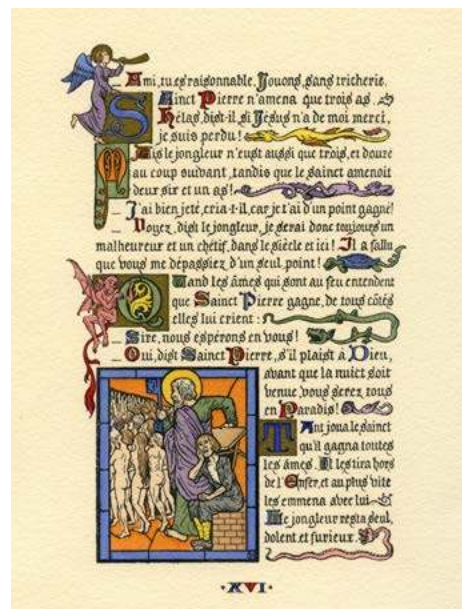 _ Ami, tu es raisonnable. Jouons, sans tricherie.
Sainct Pierre n'amena que trois as.
Hélas, dist-il, si Jésus n'a de moi merci,
je suis perdu!
Mais le jongleur n'eust aussi que trois, et douze
au coup suivant, tandis que le sainct amenoit
deux six et un as!
_ J'ai bien jeté, cria-t-il, car je t'ai d'un point gagné!
_ Voyez, dist le jongleur, je serai donc toujours un
malheureux et un chétif, dans le siècle et ici! Il a fallu
que vous me dépassiez d'un seul point!
Quand les âmes qui sont au feu entendent
que Sainct Pierre gagne, de tous côtés
elles lui crient:
_ Sire, nous espérons en vous!
_ Oui, dist Sainct Pierre, s'il plaist à Dieu,
avant que la nuict soit
venue, vous serez tous
en Paradis!
Tant joua le sainct
qu'il gagna toutes
les âmes. Il les tira hors
de l'Enfer, et au plus vite
les emmena avec lui
Le jongleur resta seul,
dolent et furieux.
·XVI·